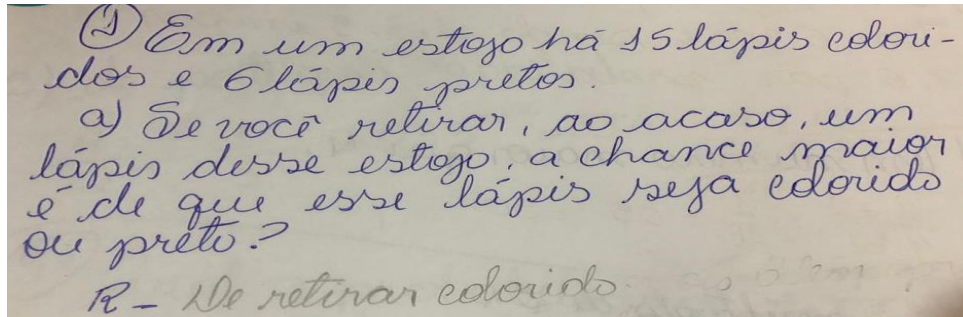 ① Em um estojo há 15 lápis colori-
dos e 6 lápis pretos.
a) Se você retirar, ao acaso, um
lápis desse estojo, a chance maior
é de que esse lápis seja colorido
ou preto?
R - De retirar colorido.